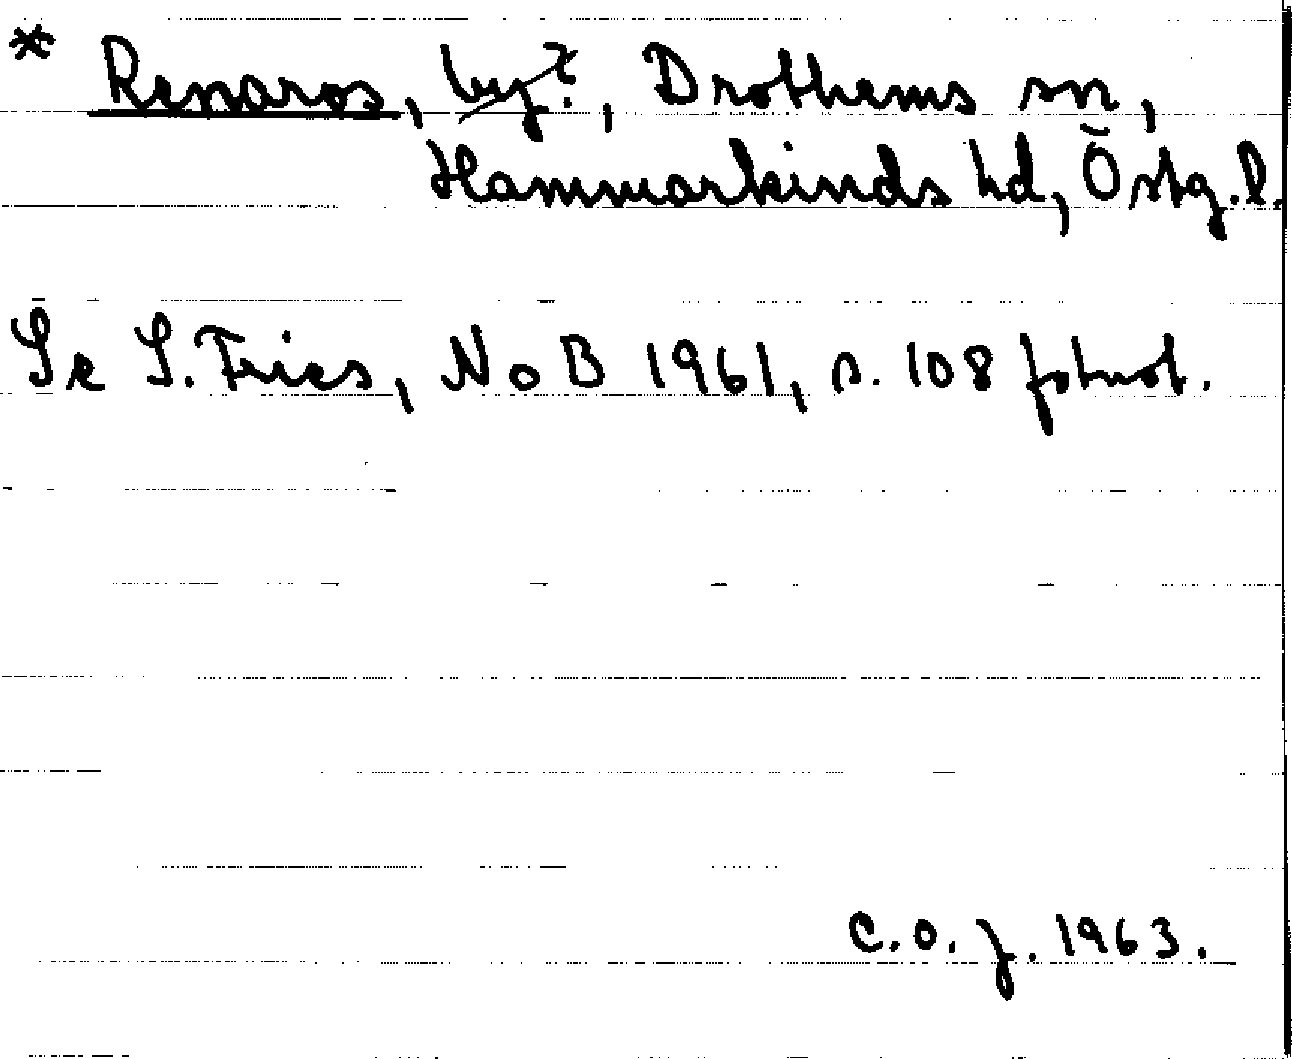 * Renaros, by?, Drothems sn,
Hammarkinds hd, Östg.l.
Se S. Fries, NoB 1961, s. 108 fotnot.
C.O.J. 1963.